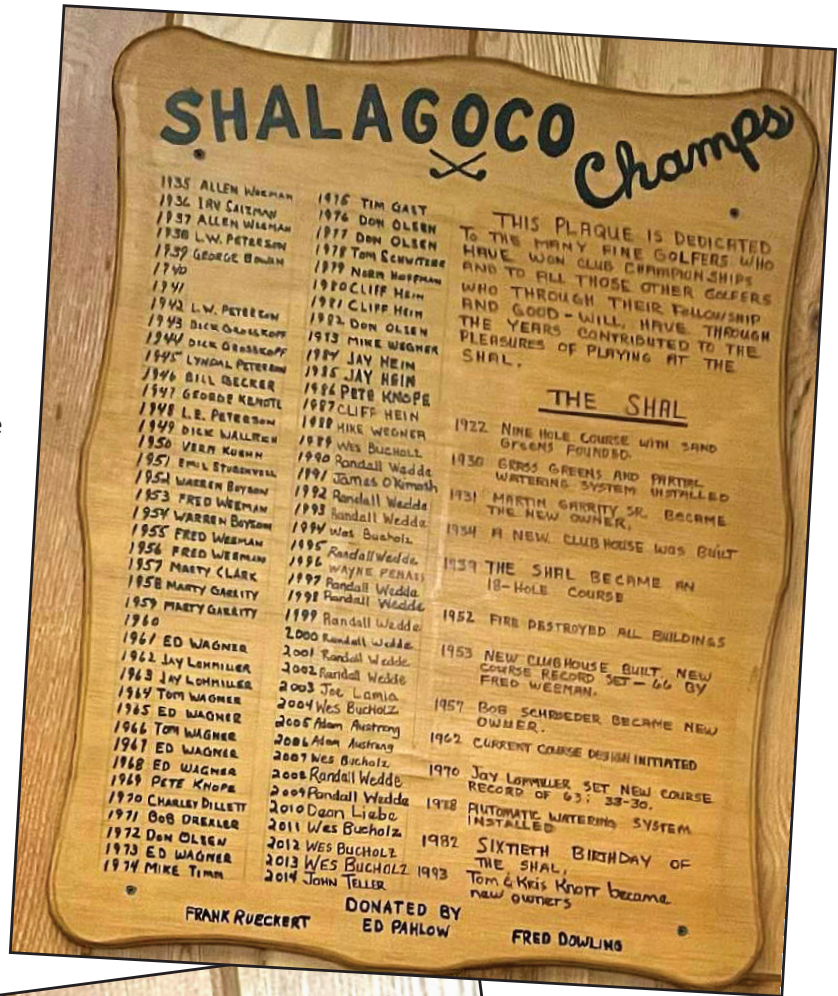 SHALAGOCO Champs
1935 ALLEN WEEMAN
1936 IRV SALZMAN
1937 ALLEN WEEMAN
1938 L.W. PETERSON
1939 GEORGE BOWAN
1940
1941
1942 L.W. PETERSON
1943 DICK GROSSKOPF
1944 DICK GROSSKOPF
1945 LYNDAL PETERSON
1946 BILL BECKER
1947 GEORGE
1948 L.E. PETERSON
1949 DICK
1950 VERN KUEHN
1951 EMIL
1952 WARREN BOYSON
1953 FRED WEEMAN
1954 WARREN BOYSON
1955 FRED WEEMAN
1956 FRED WEEMAN
1957 MARTY CLARK
1958 MARTY GARRITY
1959 MARTY GARRITY
1960
1961 ED WAGNER
1962 JAY LOHMILLER
1963 JAY LOHMILLER
1964 TOM WAGNER
1965 ED WAGNER
1966 TOM WAGNER
1967 ED WAGNER
1968 ED WAGNER
1969 PETE KNOPE
1970 CHARLEY DILLETT
1971 BOB DREXLER
1972 DON OLSEN
1973 ED WAGNER
1974 MIKE TIMM
1975 TIM GAST
1976 DON OLSEN
1977 DON OLSEN
1978 TOM SCHWITZRE
1979 NORM HOFFMAN
1980 CLIFF HEIN
1981 CLIFF HEIN
1982 DON OLSEN
1983 MIKE WEGNER
1984 JAY HEIN
1985 JAY HEIN
1986 PETE KNOPE
1987 CLIFF HEIN
1988 MIKE WEGNER
1989 WES BUCHOLZ
1990 Randall Wedde
1991 James O'Kimosh
1992 Randall Wedde
1993 Randall Wedde
1994 Wes Bucholz
1995 Randall Wedde
1996 WAYNE PENASS
1997 Randall Wedde
1998 Randall Wedde
1999 Randall Wedde
2000 Randall Wedde
2001 Randall Wedde
2002 Randall Wedde
2003 Joe Lamia
2004 Wes Bucholz
2005 Adam Austreng
2006 Adam Austreng
2007 Wes Bucholz
2008 Randall Wedde
2009 Randall Wedde
2010 Dean Liebe
2011 Wes Bucholz
2012 WES BUCHOLZ
2013 WES BUCHOLZ
2014 JOHN TELLER
THIS PLAQUE IS DEDICATED
TO THE MANY FINE GOLFERS WHO
HAVE WON CLUB CHAMPIONSHIPS
AND TO ALL THOSE OTHER GOLFERS
WHO THROUGH THEIR FELLOWSHIP
AND GOOD-WILL, HAVE THROUGH
THE YEARS CONTRIBUTED TO THE
PLEASURES OF PLAYING AT THE
SHAL.
THE SHAL
1922 NINE HOLE COURSE WITH SAND
GREENS FOUNDED.
1930 GRASS GREENS AND PARTIAL
WATERING SYSTEM INSTALLED
1931 MARTIN GARRITY SR. BECAME
THE NEW OWNER.
1934 A NEW CLUBHOUSE WAS BUILT
1939 THE SHAL BECAME AN
18-HOLE COURSE
1952 FIRE DESTROYED ALL BUILDINGS
1953 NEW CLUBHOUSE BUILT. NEW
COURSE RECORD SET - 66 BY
FRED WEEMAN.
1957 BOB SCHROEDER BECAME NEW
OWNER.
1962 CURRENT COURSE DESIGN INITIATED
1970 JAY LOHMILLER SET NEW COURSE
RECORD OF 63: 33-30.
AUTOMATIC WATERING SYSTEM
INSTALLED
1982 SIXTIETH BIRTHDAY OF
THE SHAL,
1993 Tom & Kris Knorr became
new owners
FRANK RUECKERT
DONATED BY
ED PAHLOW
FRED DOWLING